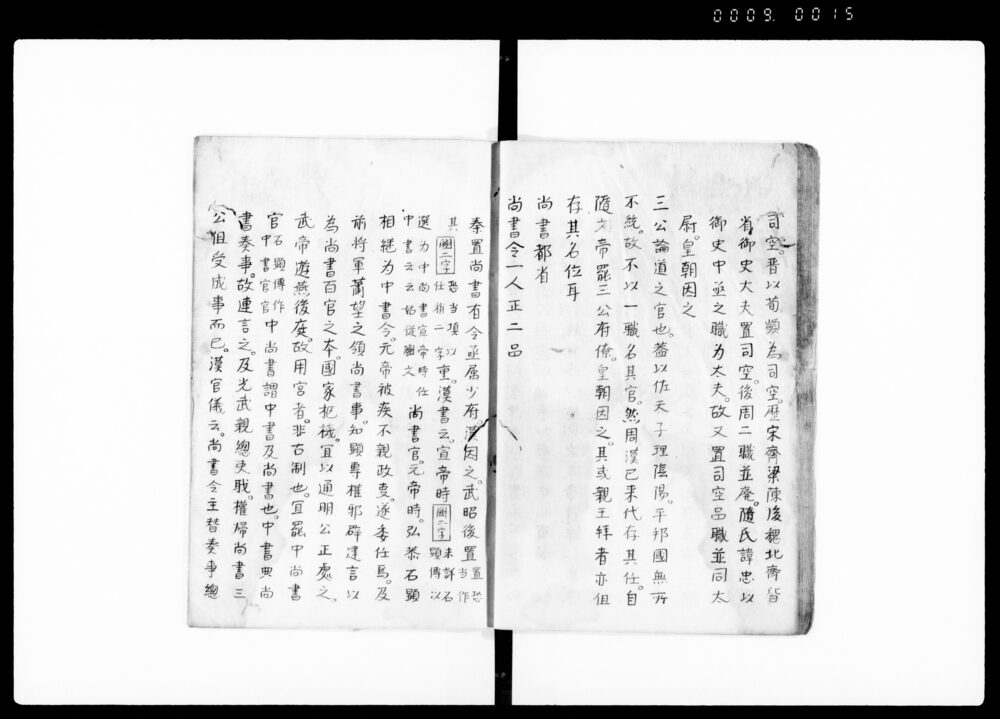 0009. 0015
司空。晋以荀顗為司空。歴宋齊梁陳後魏北齊皆
省御史大夫置司空。後周二職並廃。隨氏諱忠以
御史中丞之職為大夫。故又置司空品職並同太
尉。皇朝因之
三公論道之官也。蓋以佐天子理陰陽。平邦國無所
不統。故不以一職名其官。然周漢已来代存其任。自
隨文帝罷三公府僚。皇朝因之。其或親王拜者亦但
存其名位耳
尚書都省
尚書令一人正二品
秦置尚書有令丞属少府漢因之。武昭後置置恐当作
其闕二字恐当填以任稍二字重。漢書云。宣帝時闕二字未詳石顕傳以
選為中尚書宣帝時任中書云云始從職文尚書官。元帝時。弘恭石顕
相継為中書令。元帝被疾不親政事。遂委任焉。及
前将軍蕭望之領尚書事。知顕専權邪辟建言以
為尚書百官之本。國家枢機。宜以通明公正處之。
武帝遊燕後庭。故用宦者。非古制也。宜罷中尚書
官石顕傳作中書官官中尚書謂中書及尚書也。中書典尚
書奏事。故連言之。及光武親總吏職。權帰尚書三
公但受成事而已。漢官儀云。尚書令主賛奏事總